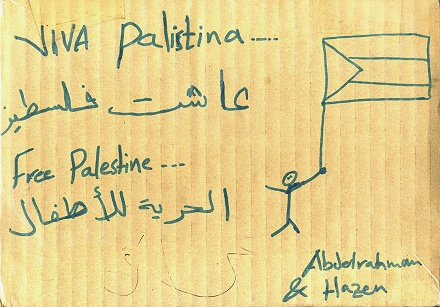 VIVA Palistina....
عاشت فلسطين
Free Palestine...
الحرية للأطفال
Abdelrahman
& Hazen